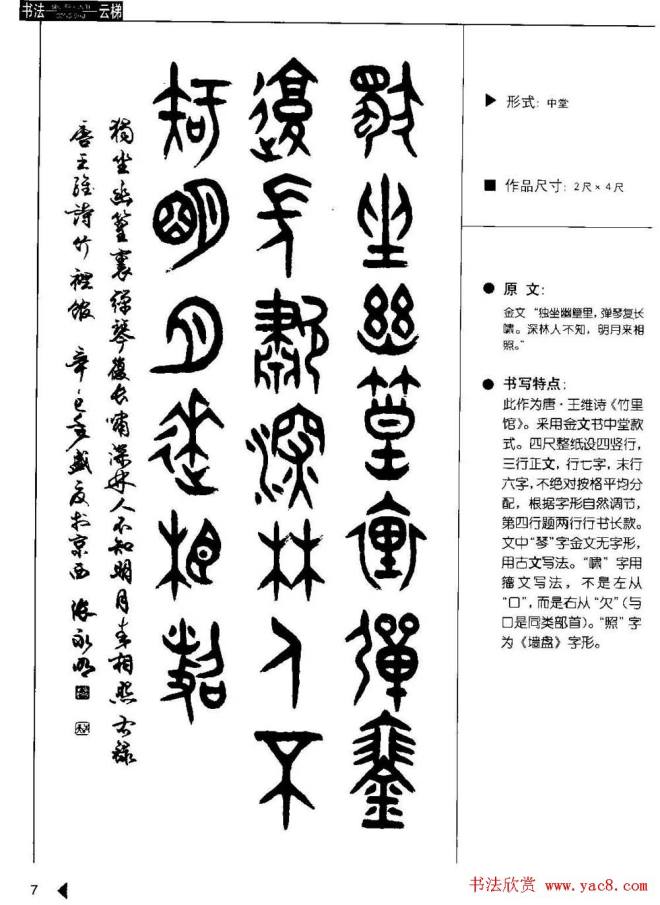 书法 云梯
獨坐幽篁裏彈琴
復長嘯深林人不
知明月來相照
獨坐幽篁裏彈琴復长嘯深林人不知明月来相照右録
唐王維詩竹裡館 辛巳年盛夏於京西 張永明
▶ 形式：中堂
■ 作品尺寸：2尺×4尺
● 原文：
金文“独坐幽篁里，弹琴复长
啸。深林人不知，明月来相
照。”
● 书写特点：
此作为唐·王维诗《竹里
馆》。采用金文书中堂款
式。四尺整纸设四竖行，
三行正文，行七字，末行
六字，不绝对按格平均分
配，根据字形自然调节，
第四行题两行行书长款。
文中“琴”字金文无字形，
用古文写法。“啸”字用
籀文写法，不是左从
“口”，而是右从“欠”（与
口是同类部首）。“照”字
为《墙盘》字形。
7
书法欣赏 www.yac8.com